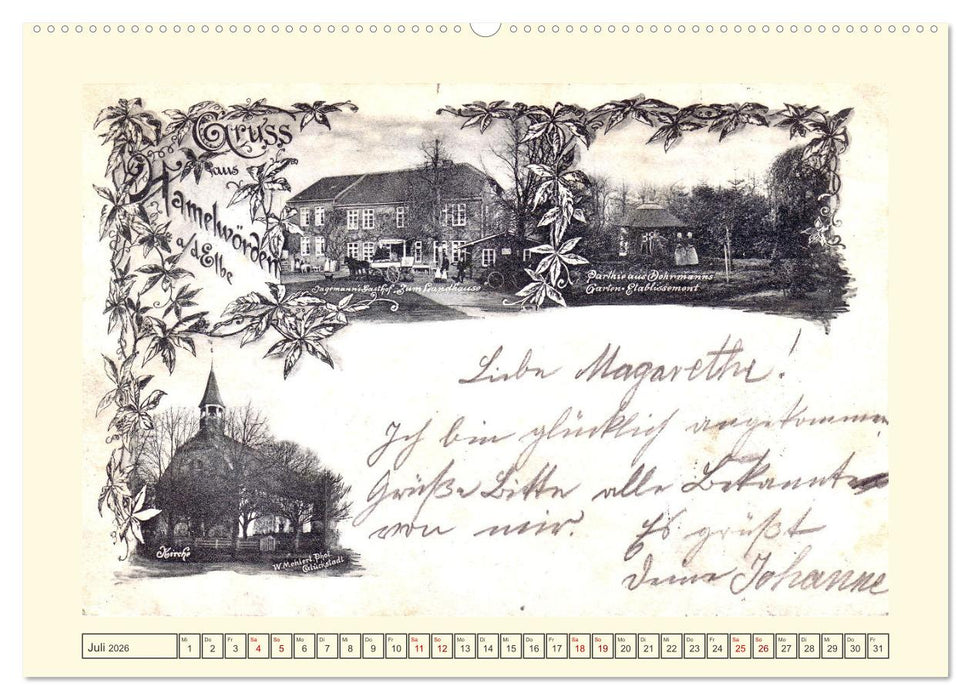 Gruss
aus
Hamelwörden
a/d Elbe
Jagemann's Gasthof „Zum Landhause
Parthie aus Dohrmanns
Garten-Etablissement
Liebe Magarethe!
Ich bin glücklich angekommen
Grüße Bitte alle Bekannte
von mir. Es grüßt
Deine Johanne
Kirche
W. Mehlert, Phot.
Glückstadt
Juli 2026
Mi Do Fr Sa So Mo Di Mi Do Fr Sa So Mo Di Mi Do Fr Sa So Mo Di Mi Do Fr Sa So Mo Di Mi Do Fr
1 2 3 4 5 6 7 8 9 10 11 12 13 14 15 16 17 18 19 20 21 22 23 24 25 26 27 28 29 30 31